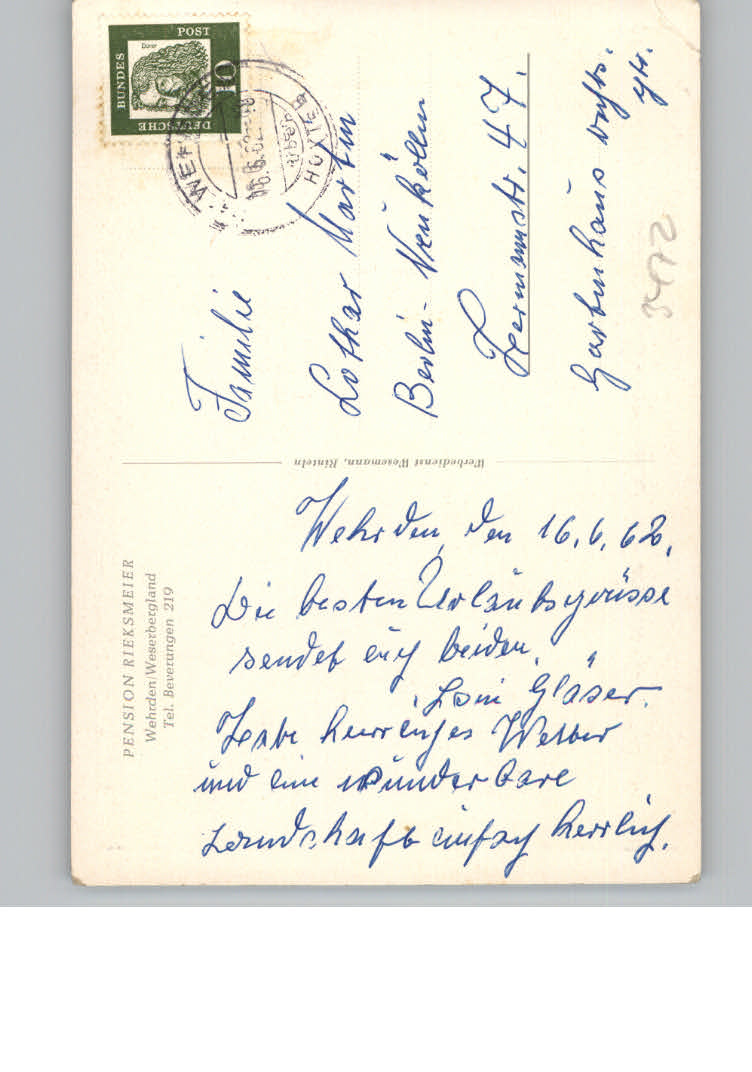 PENSION RIEKSMEIER
Wehrden/Weserbergland
Tel. Beverungen 219
Wehrden, den 16.6.62.
Die besten Urlaubsgrüsse
sendet euch beiden
Loni Gläser.
Habe herrliches Wetter
und eine wunderbare
Landschaft einfach herrlich.
Werbedienst Wesemann, Rinteln
DEUTSCHE
BUNDES
POST
Dürer
10
HÖXTER
Familie
Lothar Martin
Berlin-Neukölln
Hermannstr. 47.
Gartenhaus rechts.
ptr.
3472